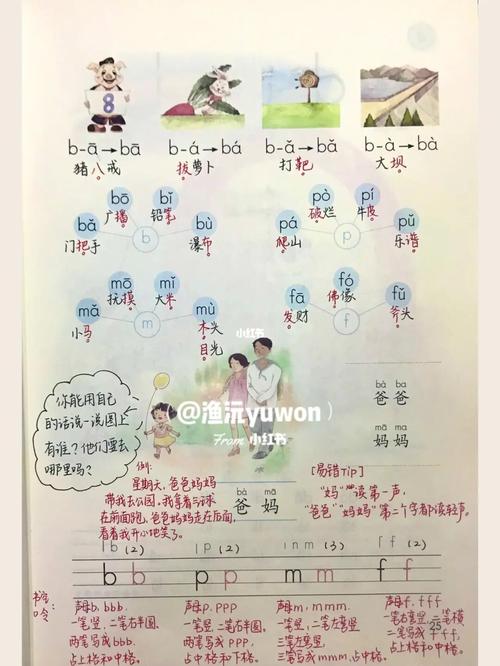 8
b-ā→bā
b-á→bá
b-ǎ→bǎ
b-à→bà
猪八戒
拔萝卜
打靶
大坝
bō
bǐ
广播
铅笔
bǎ
bù
门把手
b
瀑布
pò
pí
破烂
牛皮
pá
pǔ
爬山
p
乐谱
mō
mǐ
抚摸
大米
mǎ
mù
小马
m
木头
目光
fó
佛像
fā
fǔ
发财
f
斧头
小红书
你能用自己
的话说一说图上
有谁?他们要去
哪里吗?
@渔沅yuwon
From 小红书
bà ba
爸爸
mā ma
妈妈
例:
星期天,爸爸妈妈
带我去公园。我拿着气球
在前面跑,爸爸妈妈走在后面,
看着我开心地笑了。
bà mā
爸 妈
[易错Tip]
"妈"读第一声,
"爸爸""妈妈"第二个字都读轻声。
l b (2)
l p (2)
ı n m (3)
f f (2)
b b
p p
m m
f f
书写
口令
声母b, bbb.
一笔竖,二笔右半圆。
两笔写成bbb.
占上格和中格。
声母p. PPP
一笔竖,二笔右半圆。
两笔写成PPP
占中格和下格。
声母m, mmm.
一笔竖,二笔左弯竖
三笔左弯竖
三笔写成mmm,占中格。
声母f. fff
一笔右弯竖,二笔横
二笔写成fff
占上格和中格。
25